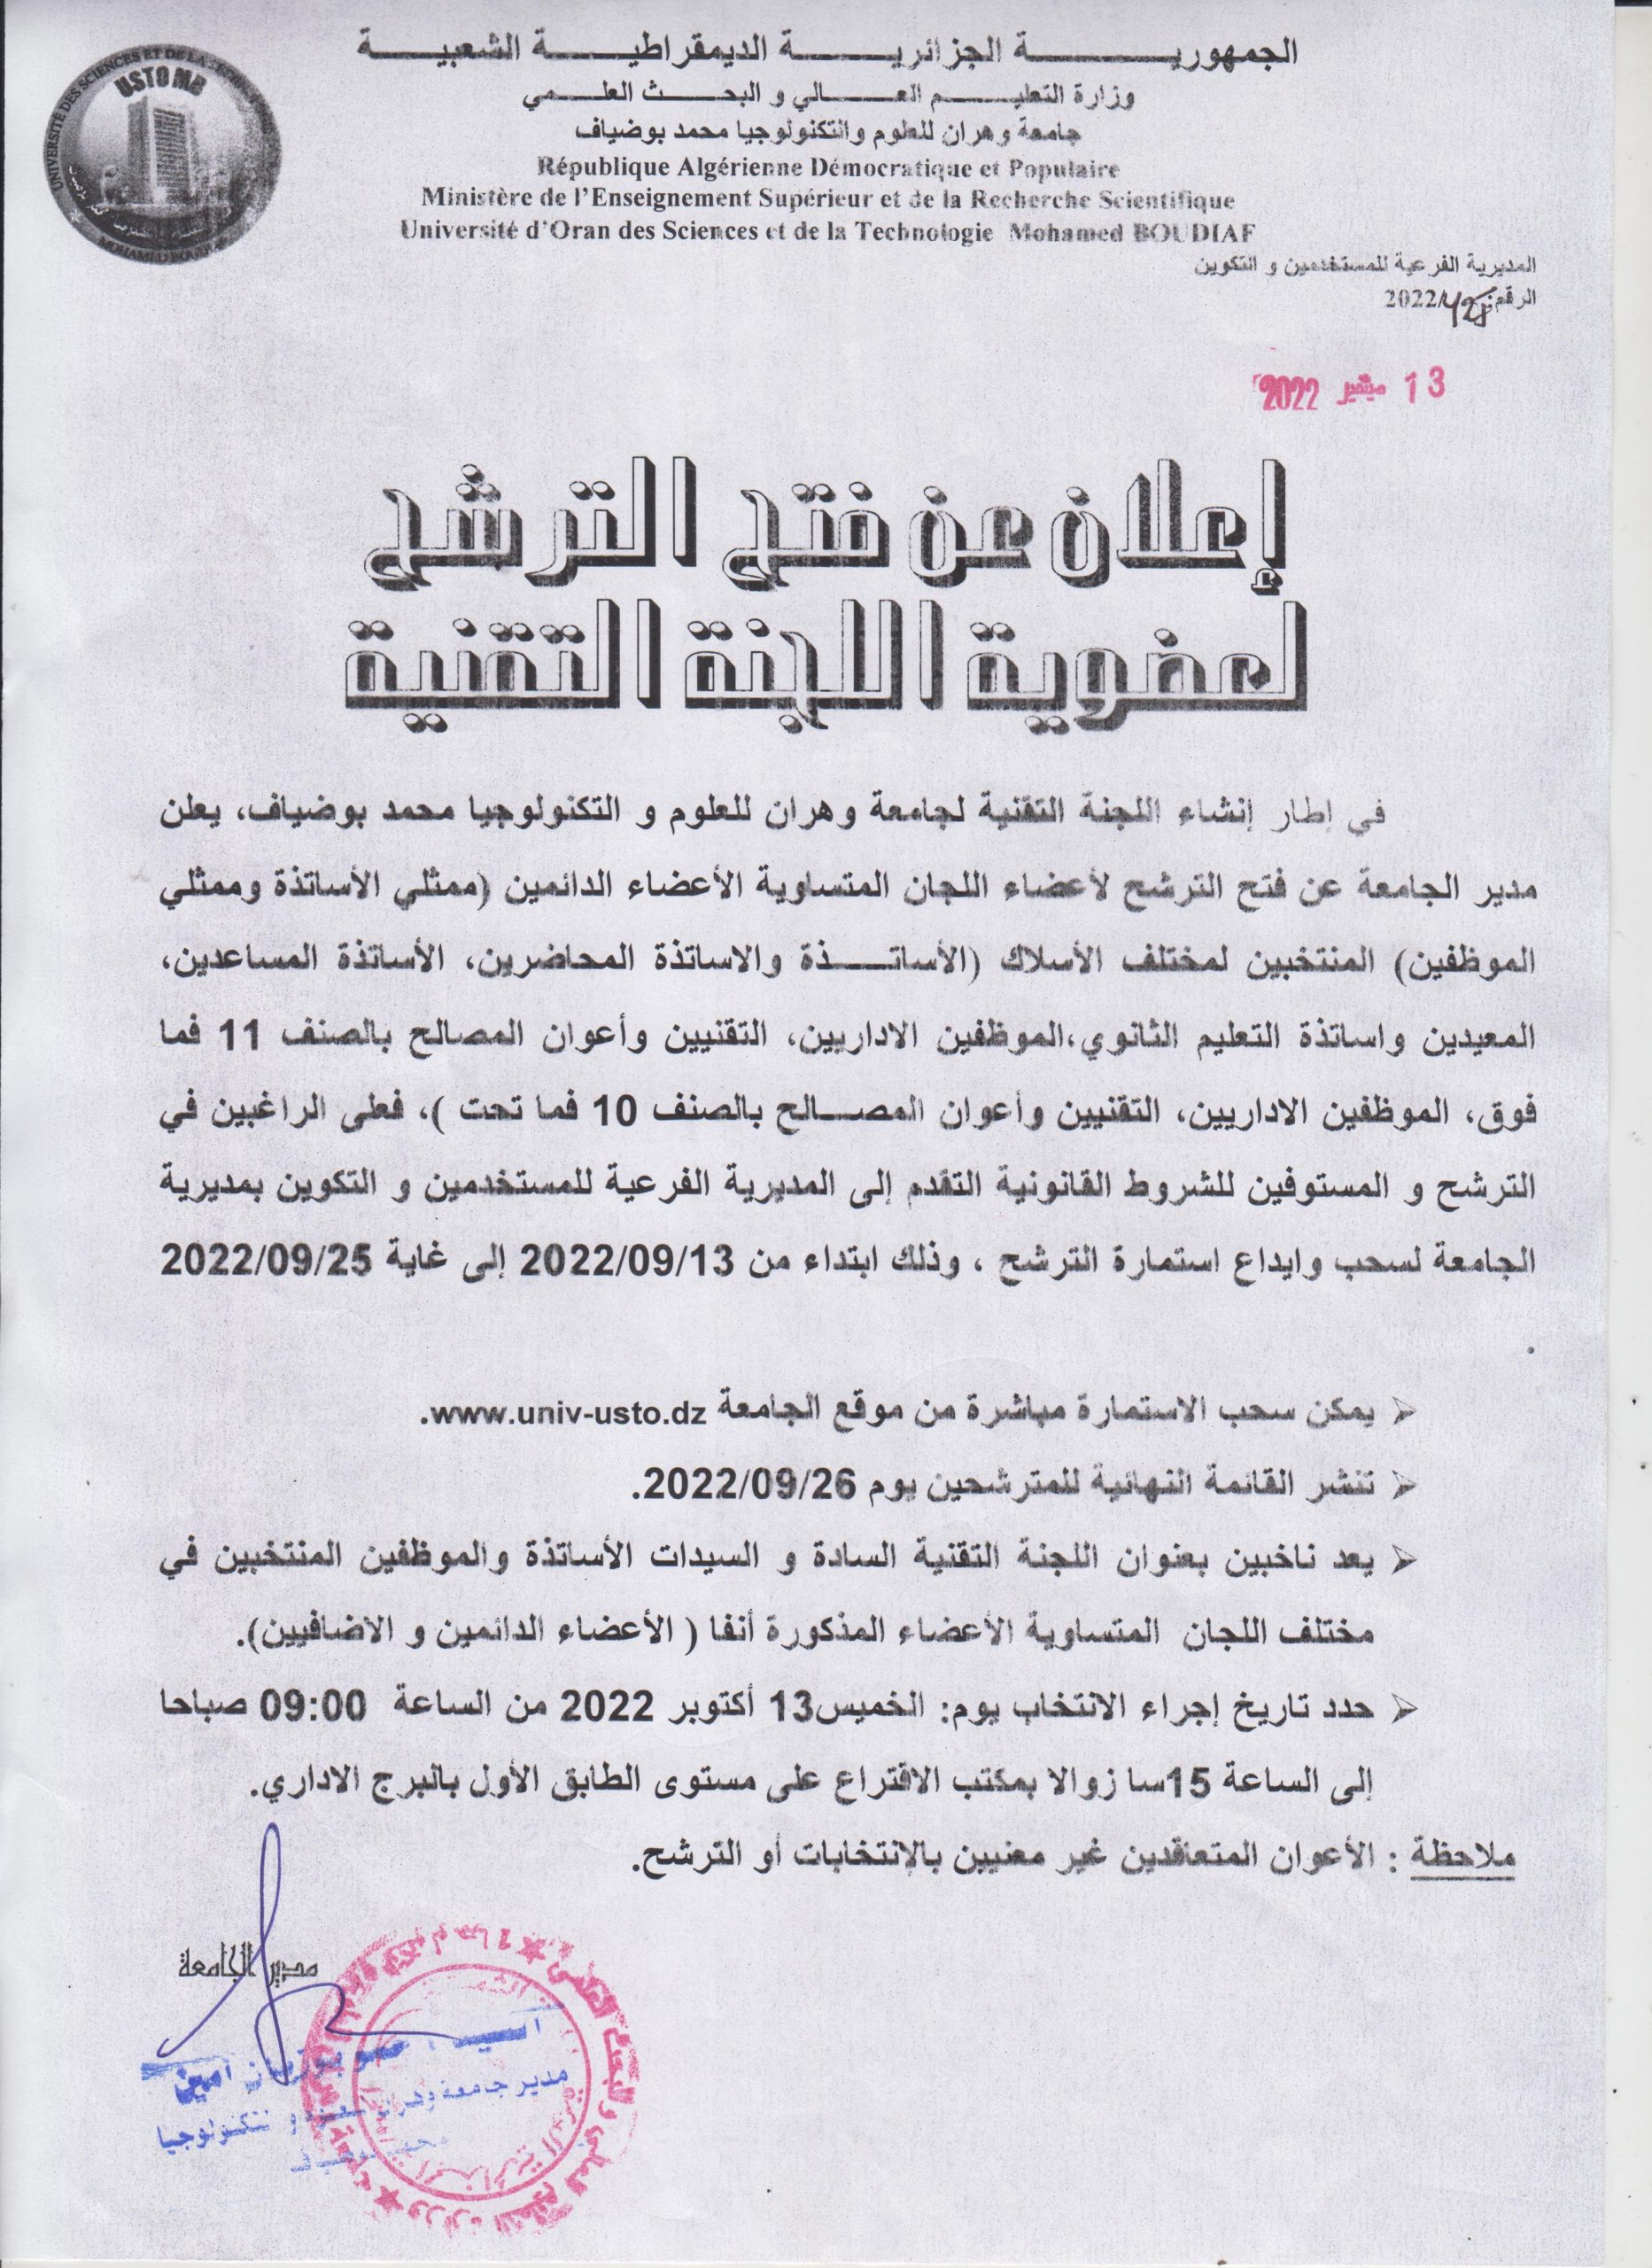 الجمهورية الجزائرية الديمقراطية الشعبية
وزارة التعليم العالي و البحث العلمي
جامعة وهران للعلوم والتكنولوجيا محمد بوضياف
République Algérienne Démocratique et Populaire
Ministère de l'Enseignement Supérieur et de la Recherche Scientifique
Université d'Oran des Sciences et de la Technologie Mohamed BOUDIAF
USTO MB
المديرية الفرعية للمستخدمين و التكوين
الرقم: /2022
13 سبتمبر 2022
إعلان عن فتح الترشح
لعضوية اللجنة التقنية
في إطار إنشاء اللجنة التقنية لجامعة وهران للعلوم و التكنولوجيا محمد بوضياف، يعلن
مدير الجامعة عن فتح الترشح لأعضاء اللجان المتساوية الأعضاء الدائمين (ممثلي الأساتذة وممثلي
الموظفين) المنتخبين لمختلف الأسلاك (الأساتذة والاساتذة المحاضرين، الأساتذة المساعدين،
المعيدين واساتذة التعليم الثانوي،الموظفين الاداريين، التقنيين وأعوان المصالح بالصنف 11 فما
فوق، الموظفين الاداريين، التقنيين وأعوان المصالح بالصنف 10 فما تحت )، فعلى الراغبين في
الترشح و المستوفين للشروط القانونية التقدم إلى المديرية الفرعية للمستخدمين و التكوين بمديرية
الجامعة لسحب وايداع استمارة الترشح ، وذلك ابتداء من 2022/09/13 إلى غاية 2022/09/25
.
➢ يمكن سحب الاستمارة مباشرة من موقع الجامعة www.univ-usto.dz.
➢ تنشر القائمة النهائية للمترشحين يوم 2022/09/26.
➢ يعد ناخبين بعنوان اللجنة التقنية السادة و السيدات الأساتذة والموظفين المنتخبين في
مختلف اللجان المتساوية الأعضاء المذكورة أنفا ( الأعضاء الدائمين و الاضافيين).
➢ حدد تاريخ إجراء الانتخاب يوم: الخميس13 أكتوبر 2022 من الساعة 09:00 صباحا
إلى الساعة 15سا زوالا بمكتب الاقتراع على مستوى الطابق الأول بالبرج الاداري.
ملاحظة : الأعوان المتعاقدين غير معنيين بالإنتخابات أو الترشح.
مدير الجامعة
مدير جامعة وهران للعلوم و التكنولوجيا
محمد بوضياف